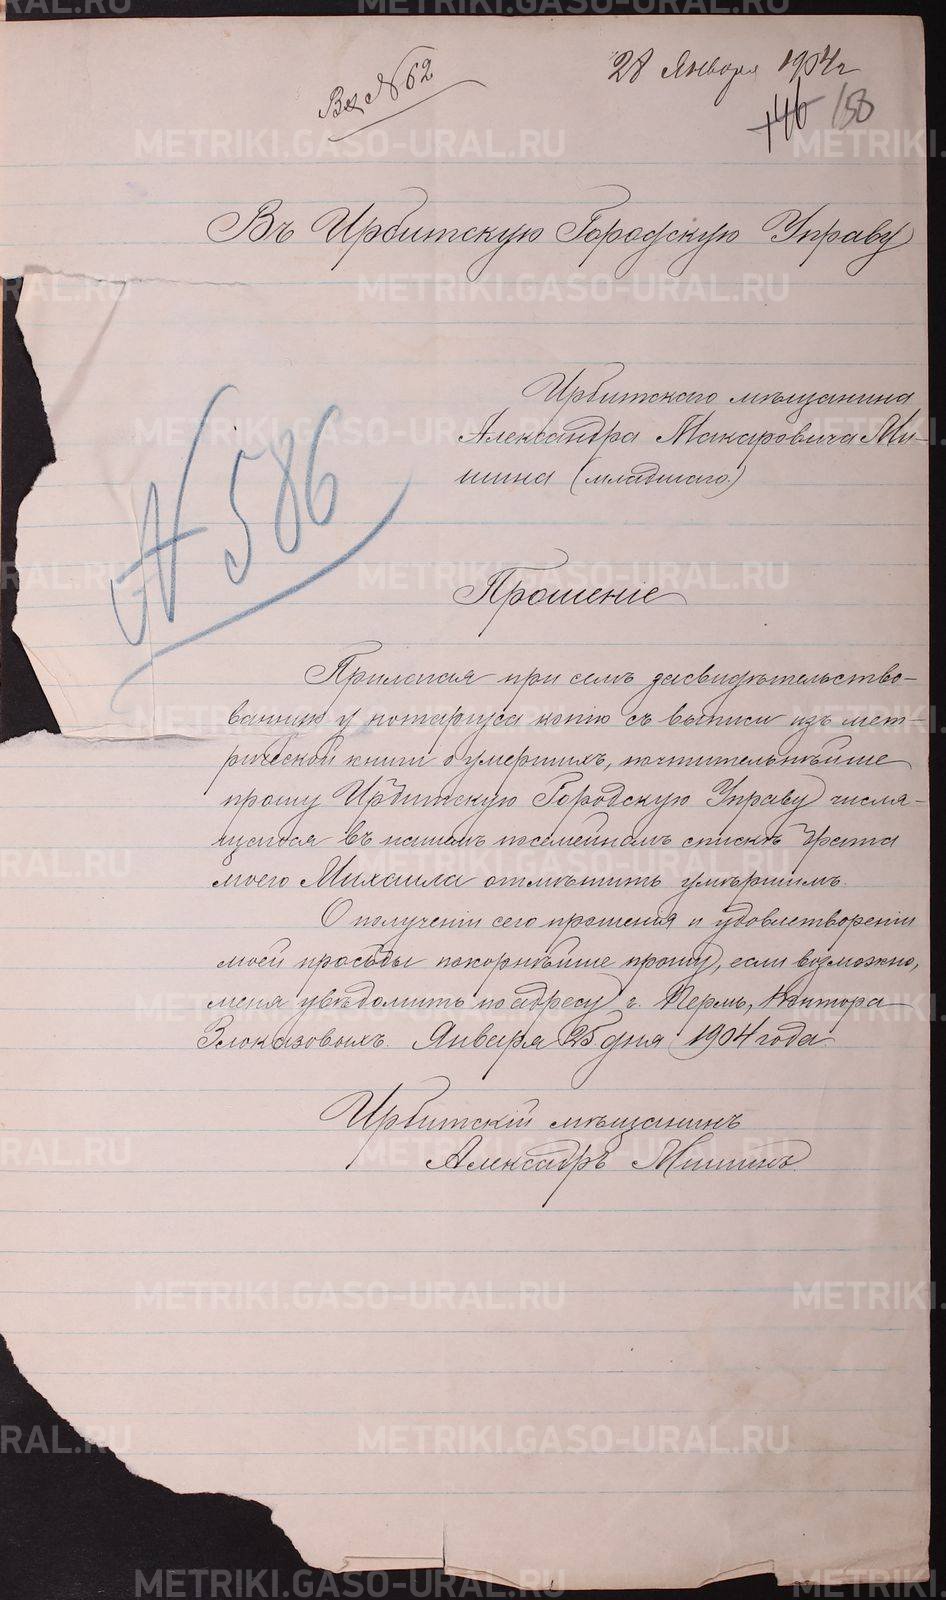 Вх № 62
28 Января 1904 г
146 158
Въ Ирбитскую Городскую Управу
№ 586
Ирбитскаго мѣщанина
Александра Макаровича Ми-
шина (младшаго)
Прошеніе
Прилагая при семъ засвидѣтельство-
ванную у нотаріуса копію съ выписи изъ мет-
рической книги о умершихъ, почтительнѣйше
прошу Ирбитскую Городскую Управу числя-
щагося въ нашемъ посемейномъ спискѣ брата
моего Михаила отмѣтить умѣршимъ.
О полученіи сего прошенія и удовлетвореніи
моей просьбы покорнѣйше прошу, если возможно,
меня увѣдомить по адресу г. Пермь, Контора
Злоказовыхъ. Января 25 дня 1904 года.
Ирбитскій мѣщанинъ
Александръ Мишинъ.
METRIKI.GASO-URAL.RU